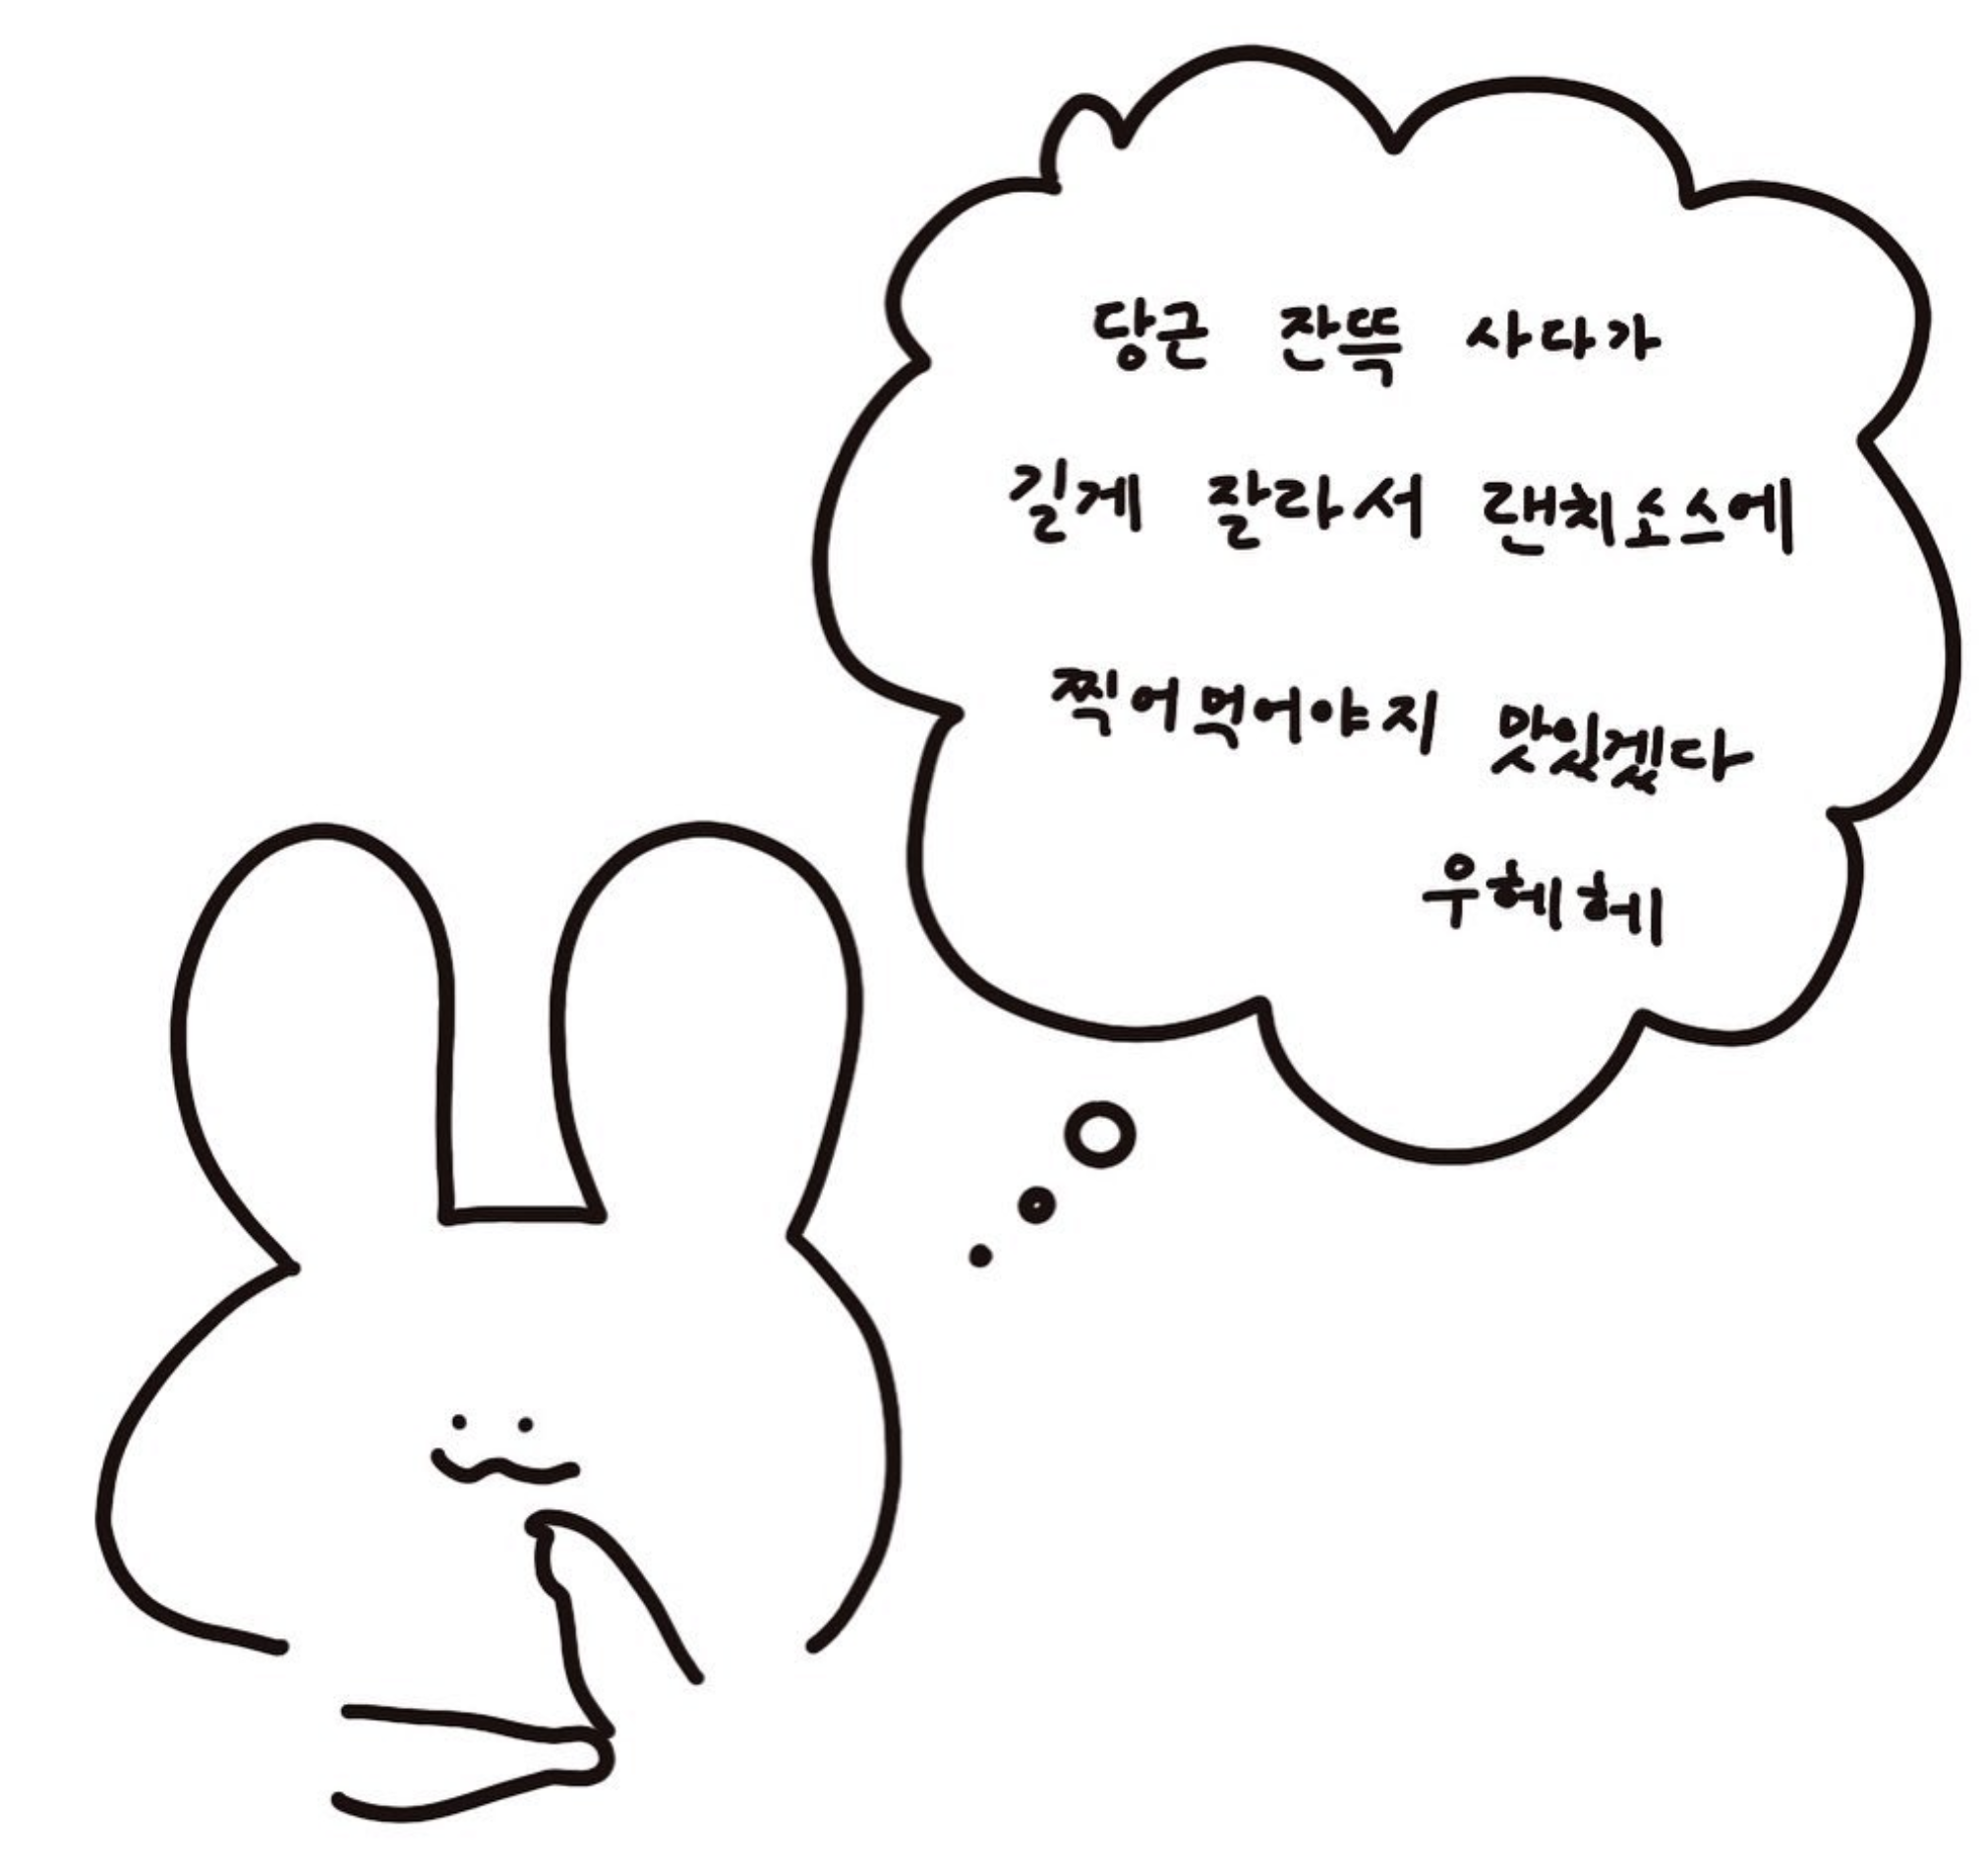 당근 잔뜩 사다가
길게 잘라서 랜치소스에
찍어먹어야지 맛있겠다
우헤헤